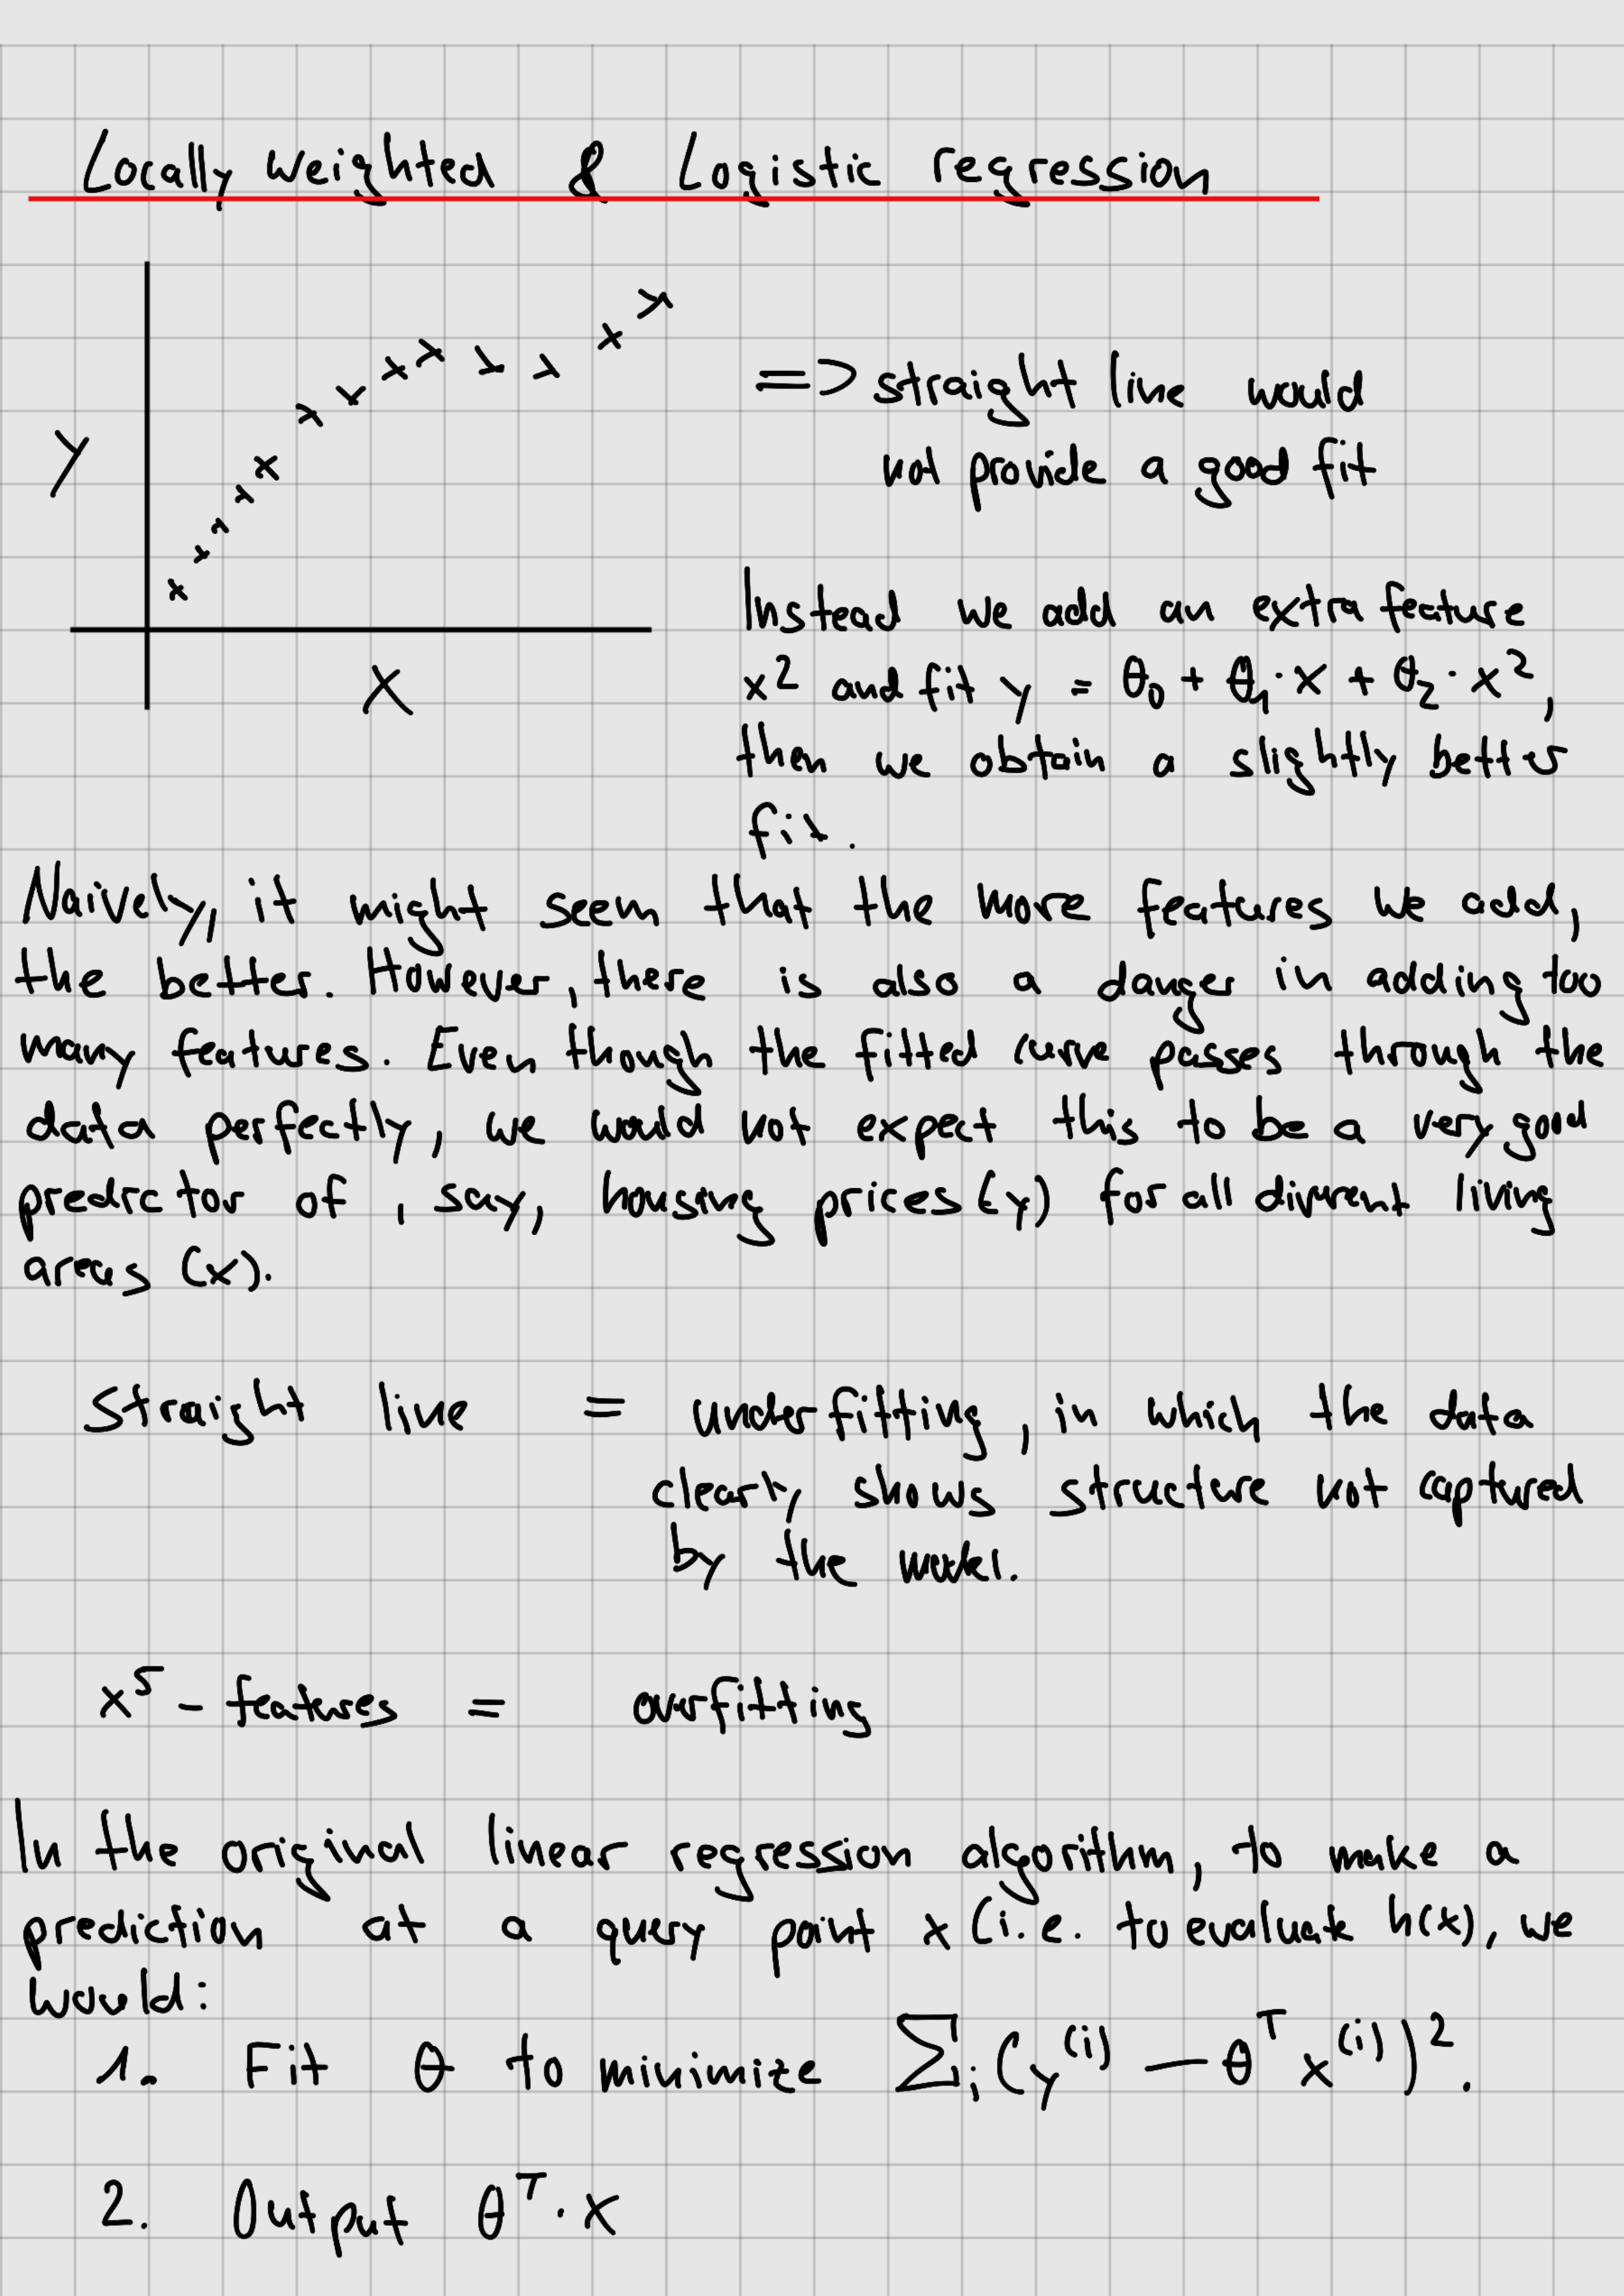 Locally weighted & Logistic regression
y
x
=> straight line would
not provide a good fit
Instead we add an extra feature
x² and fit y = θ₀ + θ₁·x + θ₂·x²,
then we obtain a slightly better
fit.
Naively, it might seem that the more features we add,
the better. However, there is also a danger in adding too
many features. Even though the fitted curve passes through the
data perfectly, we would not expect this to be a very good
predictor of, say, housing prices (y) for all living
areas (x).
Straight line = underfitting, in which the data
clearly shows structure not captured
by the model.
x⁵ - features = overfitting
In the original linear regression algorithm, to make a
prediction at a query point x (i.e. to evaluate h(x), we
would:
1. Fit θ to minimize Σᵢ(y⁽ⁱ⁾ − θᵀ x⁽ⁱ⁾)².
2. Output θᵀ·x